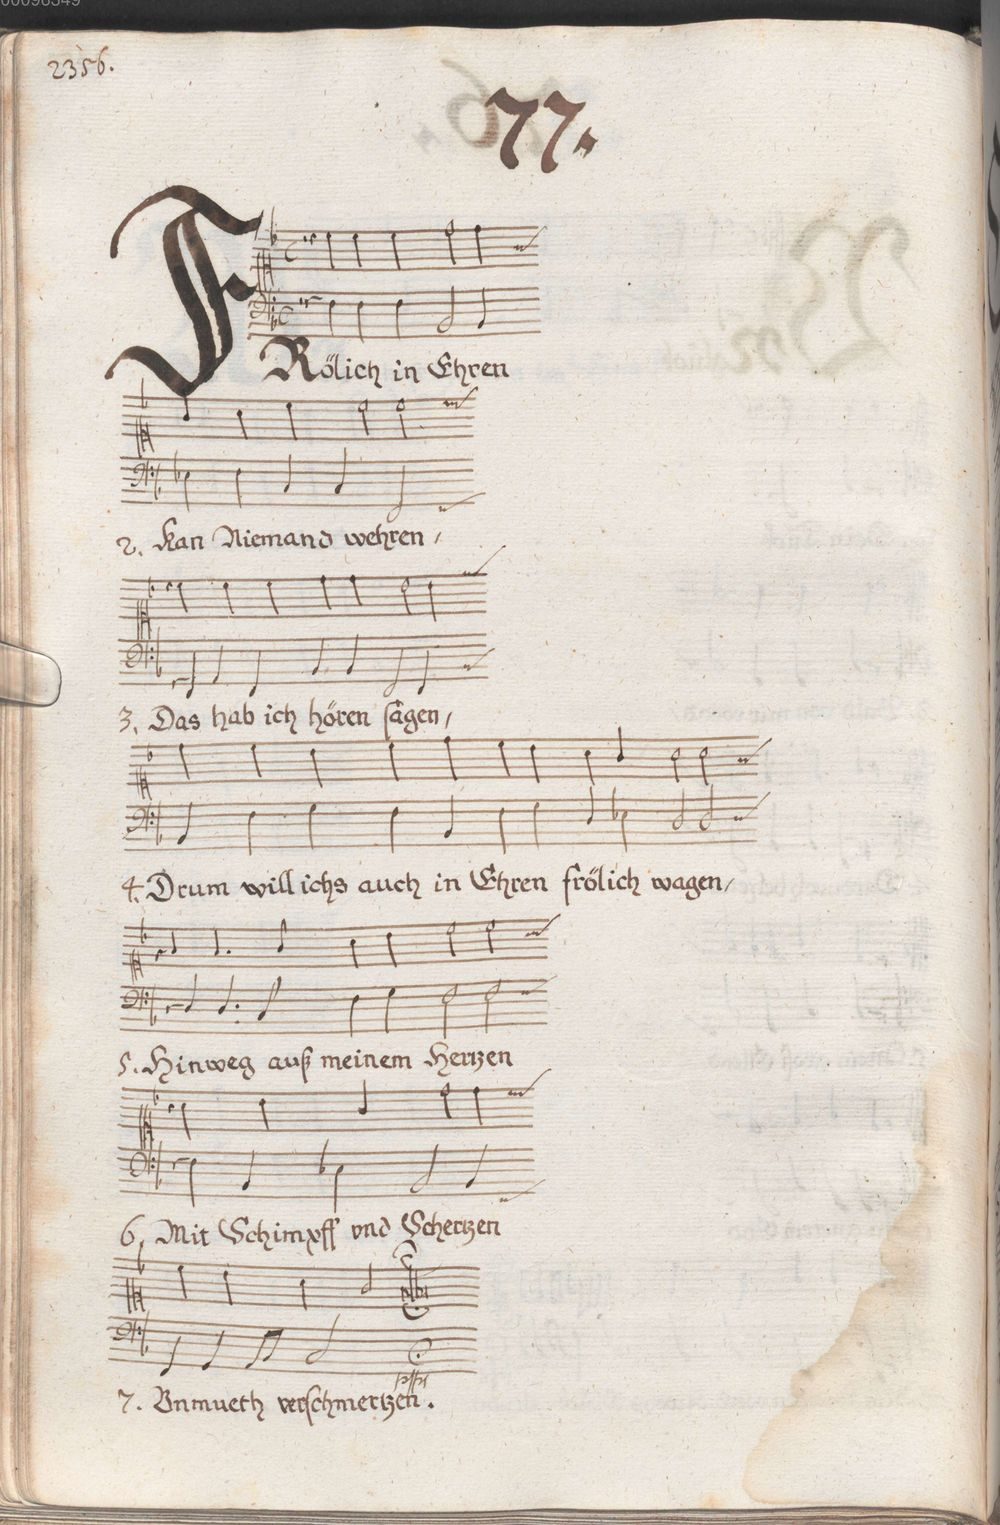 00098349
2356.
77.
FRölich in Ehren
2. Kan Niemand wehren,
3. Das hab ich hören sagen,
4. Drum will ichs auch in Ehren frölich wagen,
5. Hinweg auß meinem Hertzen
6. Mit Schimpff vnd Schertzen
7. Vnmueth verschmertzen.